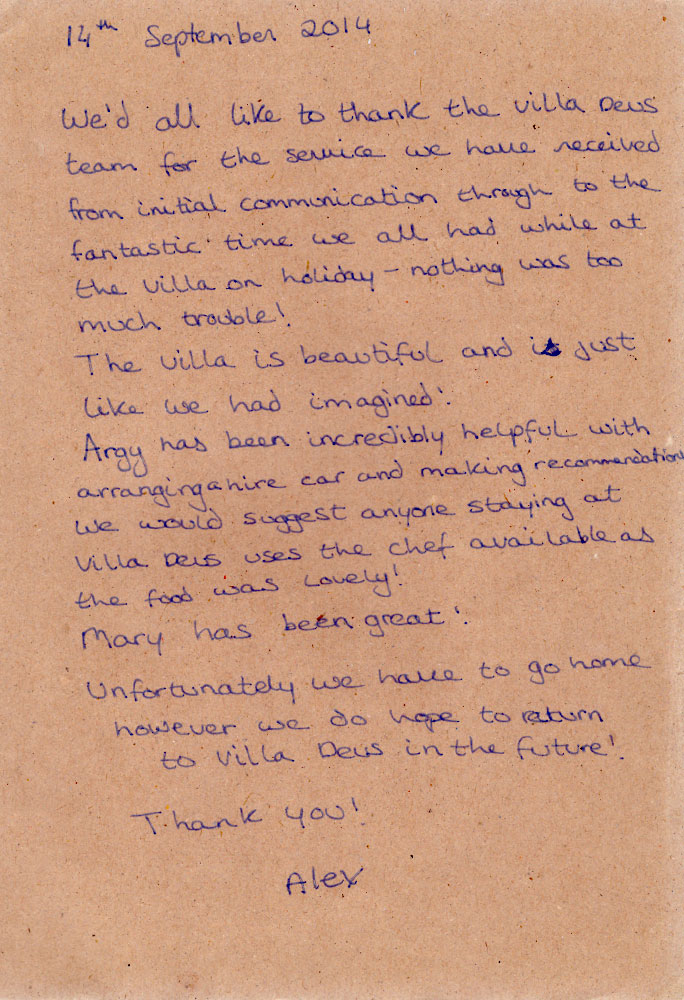 14th September 2014
We'd all like to thank the Villa Deus
team for the service we have received
from initial communication through to the
fantastic time we all had while at
the villa on holiday - nothing was too
much trouble!
The villa is beautiful and is just
like we had imagined!
Argy has been incredibly helpful with
arranging a hire car and making recommendations
we would suggest anyone staying at
Villa Deus uses the chef available as
the food was lovely!
Mary has been great!
Unfortunately we have to go home
however we do hope to return
to Villa Deus in the future!
Thank you!
Alex